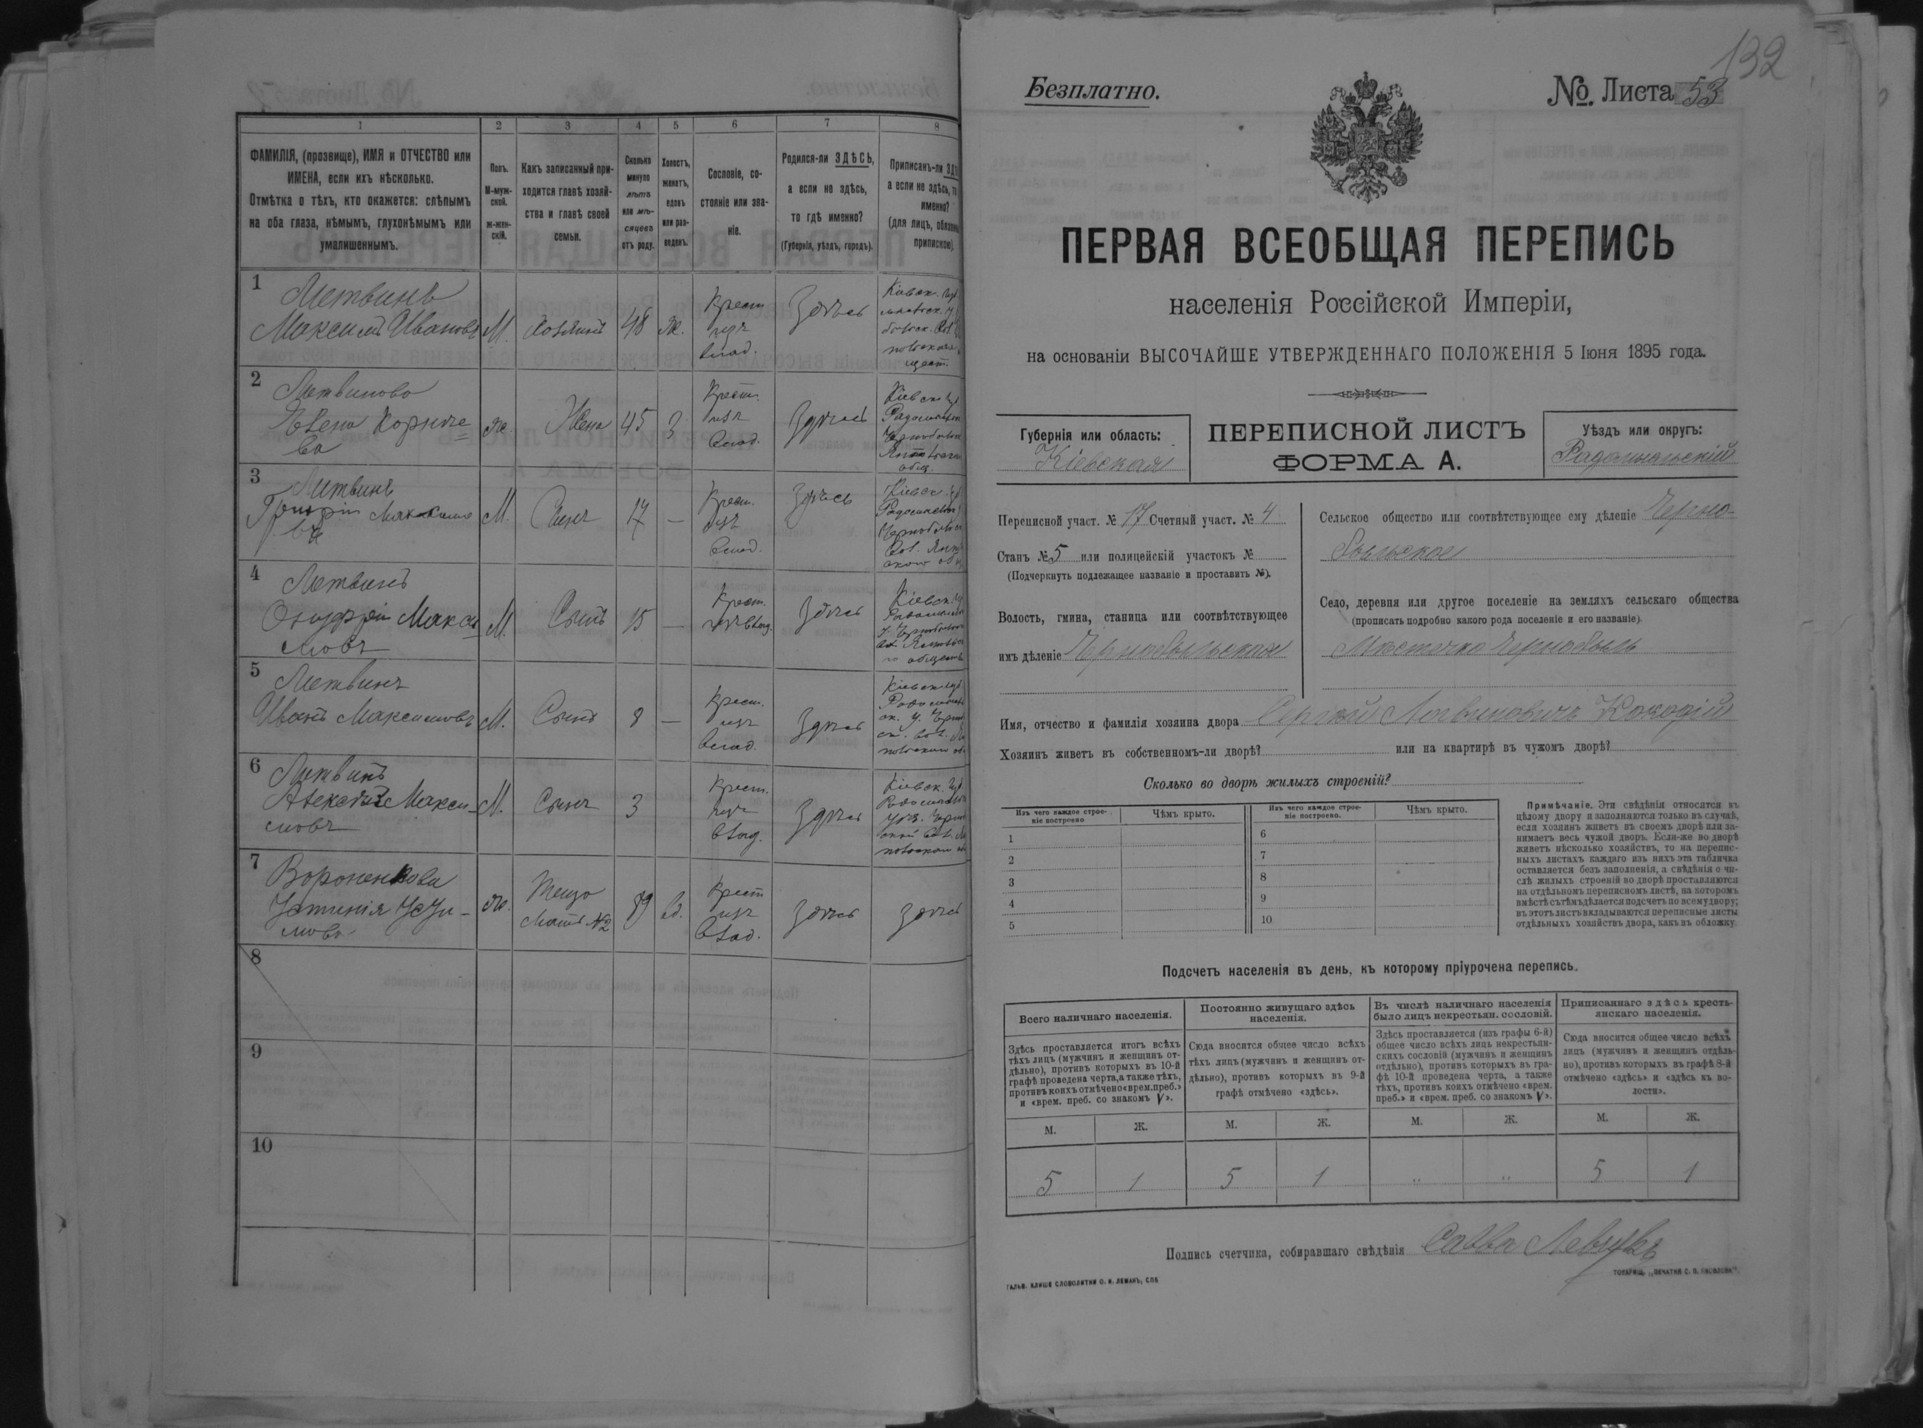 1 2 3 4 5 6 7 8
ФАМИЛІЯ, (прозвище), ИМЯ и ОТЧЕСТВО или
ИМЕНА, если ихъ нѣсколько.
Отмѣтка о тѣхъ, кто окажется: слѣпымъ
на оба глаза, нѣмымъ, глухонѣмымъ или
умалишеннымъ.
Полъ.
М-муж-
ской.
ж-жен-
скій.
Какъ записанный при-
ходится главѣ хозяй-
ства и главѣ своей
семьи.
Сколько
минуло
лѣтъ
или мѣ-
сяцевъ
отъ роду.
Холостъ,
женатъ,
вдовъ
или раз-
веденъ.
Сословіе, со-
стояніе или зва-
ніе.
Родился-ли ЗДѢСЬ,
а если не здѣсь,
то гдѣ именно?
(Губернія, уѣздъ, городъ).
Приписанъ-ли
а если не здѣсь,
именно?
(для лицъ,
припискою).
1
Литвинъ
Максимъ Ивановъ
М.
Хозяинъ
48
ж.
Крест.
изъ
влад.
Здѣсь
2
Литвинова
Корнѣе=
ва
ж.
Жена
45
З.
Крест.
изъ
влад.
Здѣсь
3
Литвинъ
Григорій Максимо
въ
М.
Сынъ
17
—
Крест.
изъ
влад.
Здѣсь
4
Литвинъ
Онуфрій Макси
мовъ
М.
Сынъ
15
—
Крест.
изъ влад.
Здѣсь
5
Литвинъ
Иванъ Максимовъ
М.
Сынъ
8
—
Крест.
изъ
влад.
Здѣсь
6
Литвинъ
Алексѣй Макси-
мовъ
М.
Сынъ
3
Крест.
изъ
влад.
Здѣсь
7
Вороненкова
Устинія
ж.
Теща
Мать №2
89
вд.
Крест
изъ
влад.
Здѣсь
Здѣсь
8
9
10
132
Безплатно.
№. Листа 53
ПЕРВАЯ ВСЕОБЩАЯ ПЕРЕПИСЬ
населенія Россійской Имперіи,
на основаніи ВЫСОЧАЙШЕ УТВЕРЖДЕННАГО ПОЛОЖЕНІЯ 5 Іюня 1895 года.
Губернія или область:
Кіевская
ПЕРЕПИСНОЙ ЛИСТЪ
ФОРМА А.
Уѣздъ или округъ:
Радомысльскій
Переписной участ. № 17 Счетный участ. № 4
Станъ № 5 или полицейскій участокъ №
(Подчеркнуть подлежащее названіе и проставить №).
Волость, гмина, станица или соотвѣтствующее
имъ дѣленіе Чернобыльская
Сельское общество или соотвѣтствующее ему дѣленіе Черно-
быльское
Село, деревня или другое поселеніе на земляхъ сельскаго общества
(прописать подробно какого рода поселеніе и его названіе).
Мѣстечко Чернобыль
Имя, отчество и фамилія хозяина двора Сергѣй Логвиновичъ
Хозяинъ живетъ въ собственномъ-ли дворѣ? или на квартирѣ въ чужомъ дворѣ?
Сколько во дворѣ жилыхъ строеній?
Изъ чего каждое строе-
ніе построено
Чѣмъ крыто.
Изъ чего каждое строе-
ніе построено.
Чѣмъ крыто.
1 6
2 7
3 8
4 9
5 10
Примѣчаніе. Эти свѣдѣнія относятся къ
цѣлому двору и заполняются только въ случаѣ,
если хозяинъ живетъ въ своемъ дворѣ или за-
нимаетъ весь чужой дворъ. Если-же во дворѣ
живетъ нѣсколько хозяйствъ, то на перепис-
ныхъ листахъ каждаго изъ нихъ эта табличка
оставляется безъ заполненія, а свѣдѣнія о чи-
слѣ жилыхъ строеній во дворѣ проставляются
на отдѣльномъ переписномъ листѣ, на которомъ
вмѣстѣ съ тѣмъ дѣлается подсчетъ по всему двору;
въ этотъ листъ вкладываются переписные листы
отдѣльныхъ хозяйствъ двора, какъ въ обложку.
Подсчетъ населенія въ день, къ которому пріурочена перепись.
Всего наличнаго населенія.
Постоянно живущаго здѣсь
населенія.
Въ числѣ наличнаго населенія
было лицъ некрестьян. сословій.
Приписаннаго здѣсь кресть-
янскаго населенія.
Здѣсь проставляется итогъ всѣхъ
тѣхъ лицъ (мужчинъ и женщинъ от-
дѣльно), противъ которыхъ въ 10-й
графѣ проведена черта, а также тѣхъ,
противъ коихъ отмѣчено «врем. преб.»
и «врем. преб. со знакомъ V».
Сюда вносится общее число всѣхъ
тѣхъ лицъ (мужчинъ и женщинъ от-
дѣльно), противъ которыхъ въ 9-й
графѣ отмѣчено «здѣсь».
Здѣсь проставляется (изъ графы 6-й)
общее число всѣхъ лицъ некрестьян-
скихъ сословій (мужчинъ и женщинъ
отдѣльно), противъ которыхъ въ гра-
фѣ 10-й проведена черта, а также
тѣхъ, противъ коихъ отмѣчено «врем.
преб.» и «врем. преб. со знакомъ V».
Сюда вносится общее число всѣхъ
лицъ (мужчинъ и женщинъ отдѣль-
но), противъ которыхъ въ графѣ 8-й
отмѣчено «здѣсь» и «здѣсь въ во-
лости».
М. Ж. М. Ж. М. Ж. М. Ж.
5 1 5 1 „ „ 5 1
Подпись счетчика, собиравшаго свѣдѣнія Савва Левчукъ
ГАЛЬВ. КЛИШЕ СЛОВОЛИТНИ О. И. ЛЕМАНЪ, СПБ
ТОВАРИЩ. „ПЕЧАТНЯ С. П. ЯКОВЛЕВА“.